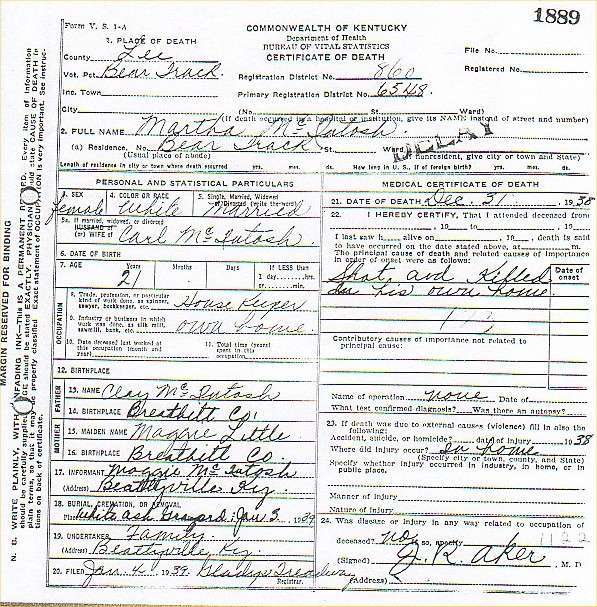 1889
Form V. S. 1-A
COMMONWEALTH OF KENTUCKY
Department of Health
BUREAU OF VITAL STATISTICS
CERTIFICATE OF DEATH
1. PLACE OF DEATH
County Lee
Vot. Pct. Bear Track
Inc. Town
City
File No.
Registered No.
Registration District No. 860
Primary Registration District No. 6548
(No. St. Ward)
(If death occurred in a hospital or institution, give its NAME instead of street and number)
2. FULL NAME Martha McIntosh
DELAY
(a) Residence, No. Bear Track St. Ward
(Usual place of abode) (If nonresident, give city or town and State)
Length of residence in city or town where death occurred yrs. mos. ds. How long in U. S., if of foreign birth? yrs. mos. ds.
PERSONAL AND STATISTICAL PARTICULARS
3. SEX 4. COLOR OR RACE 5. Single, Married, Widowed or Divorced (write the word)
female White Married
5a. If married, widowed or divorced
HUSBAND of
(or) WIFE of Carl McIntosh
6. DATE OF BIRTH
7. AGE Years Months Days If LESS than
21 1 day, hrs.
or min.
OCCUPATION
8. Trade, profession, or particular kind of work done, as spinner, sawyer, bookkeeper, etc. House Keeper
9. Industry or business in which work was done, as silk mill, sawmill, bank, etc. own home
10. Date deceased last worked at this occupation (month and year)
11. Total time (years) spent in this occupation
12. BIRTHPLACE
FATHER
13. NAME Clay McIntosh
14. BIRTHPLACE Breathitt Co.
MOTHER
15. MAIDEN NAME Maggie Little
16. BIRTHPLACE Breathitt Co.
17. INFORMANT Maggie McIntosh
(Address) Beattyville Ky.
18. BURIAL, CREMATION, OR REMOVAL
Place White ash Graveyard Jan 3 1939
19. UNDERTAKER Family
(Address) Beattyville, Ky.
20. FILED Jan. 4 1939. Gladys Treadway
Registrar.
MEDICAL CERTIFICATE OF DEATH
21. DATE OF DEATH Dec. 31, 1938
22. I HEREBY CERTIFY, That I attended deceased from
, 19 , to , 19
I last saw h alive on , 19 , death is said
to have occurred on the date stated above, at m.
The principal cause of death and related causes of importance
in order of onset were as follows:
Date of onset
Shot and Killed
in his own home
Contributory causes of importance not related to
principal cause:
Name of operation none Date of
What test confirmed diagnosis? Was there an autopsy?
23. If death was due to external causes (violence) fill in also the
following:
Accident, suicide, or homicide? date of injury 1938
Where did injury occur? in home
(Specify city or town, county, and State)
Specify whether injury occurred in industry, in home, or in
public place.
Manner of injury
Nature of injury
24. Was disease or injury in any way related to occupation of
deceased? no If so, specify
1122
(Signed) J. R. Aker, M D
(Address)
MARGIN RESERVED FOR BINDING
N. B. WRITE PLAINLY, WITH UNFADING INK—THIS IS A PERMANENT RECORD. Every item of information
should be carefully supplied. AGE should be stated EXACTLY. PHYSICIANS should state CAUSE OF DEATH in
plain terms, so that it may be properly classified. Exact statement of OCCUPATION is very important. See instructions on back of certificate.